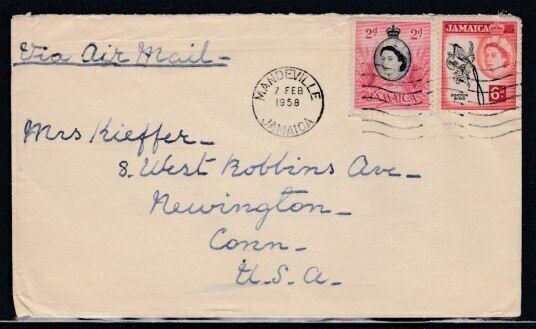 Via Air Mail
2d 2d
JAMAICA
JAMAICA
6d
MANDEVILLE
7 FEB
1958
JAMAICA
Mrs Kieffer
8. West Robbins Ave
Newington
Conn
U.S.A.